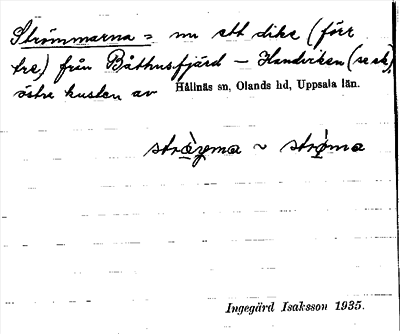 Strömmarna = nu ett dike (förr
tre) från Båthusfjärd – Handviken (se sk),
östra kusten av Hållnäs sn, Olands hd, Uppsala län.
Ingegärd Isaksson 1935.